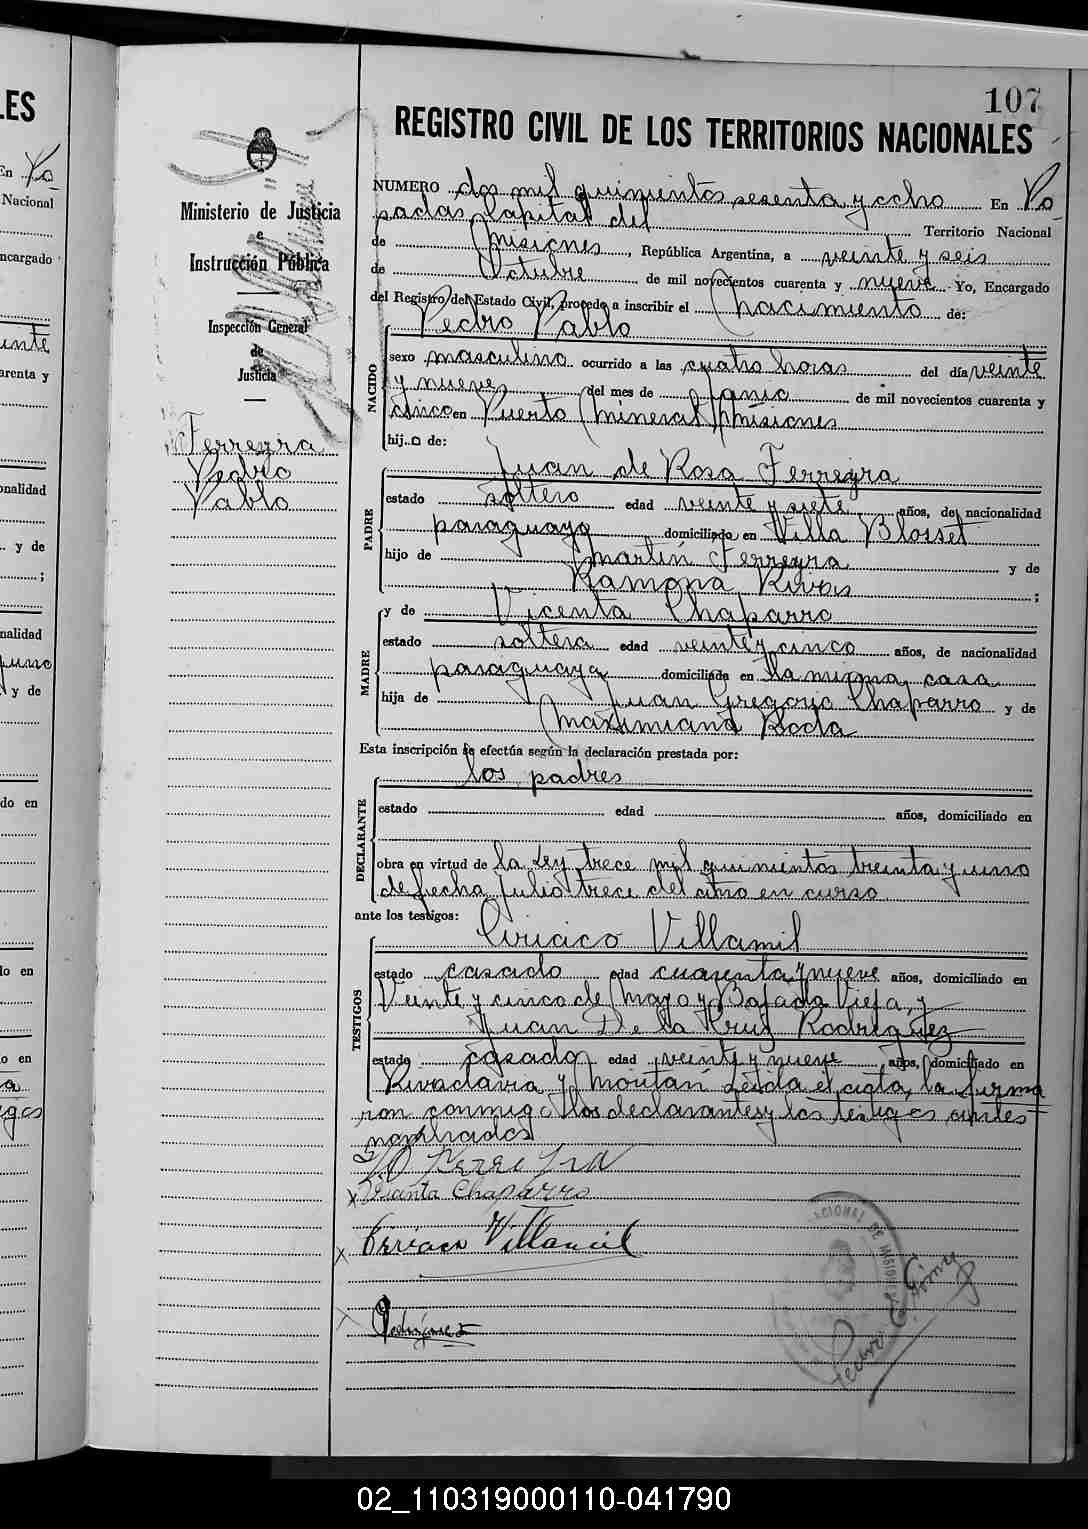 107
REGISTRO CIVIL DE LOS TERRITORIOS NACIONALES
Ministerio de Justicia
e
Instrucción Pública
Inspección General
de
Justicia
Ferreyra
Pedro
Pablo
NUMERO dos mil quinientos sesenta y ocho En Po-
sadas Capital del Territorio Nacional
de Misiones, República Argentina, a veinte y seis
de Octubre de mil novecientos cuarenta y nueve Yo, Encargado
del Registro del Estado Civil, procedo a inscribir el nacimiento de:
Pedro Pablo
NACIDO
sexo masculino ocurrido a las cuatro horas del día veinte
y nueve del mes de Junio de mil novecientos cuarenta y
cinco en Puerto Mineral Misiones
hijo de:
Juan de Rosa Ferreyra
PADRE
estado soltero edad veinte y siete años, de nacionalidad
paraguayo domiciliado en Villa Blosset
hijo de Martín Ferreyra y de
Ramona Rivas ;
MADRE
y de Vicenta Chaparro
estado soltera edad veinte y cinco años, de nacionalidad
paraguaya domiciliada en la misma casa
hija de Juan Gregorio Chaparro y de
Maximiana
Esta inscripción se efectúa según la declaración prestada por:
los padres
DECLARANTE
estado edad años, domiciliado en
obra en virtud de la Ley trece mil quinientos treinta y uno
de fecha Julio trece del año en curso
ante los testigos:
Ciriaco Villamil
TESTIGOS
estado casado edad cuarenta y nueve años, domiciliado en
Veinte y cinco de Mayo y Bajada Vieja, y
Juan De la Cruz Rodriguez
estado casado edad veinte y nueve años, domiciliado en
Rivadavia y leida el acta, la firma
ron conmigo los declarantes y los testigos antes
nombrados
Ferreyra
Vicenta Chaparro
Ciriaco Villamil
Rodriguez
NACIONAL DE MISIONES
Pedro
LES
En Po-
Nacional
ncargado
inte
arenta y
onalidad
y de
;
nalidad
y de
do en
lo en
o en
02_110319000110-041790